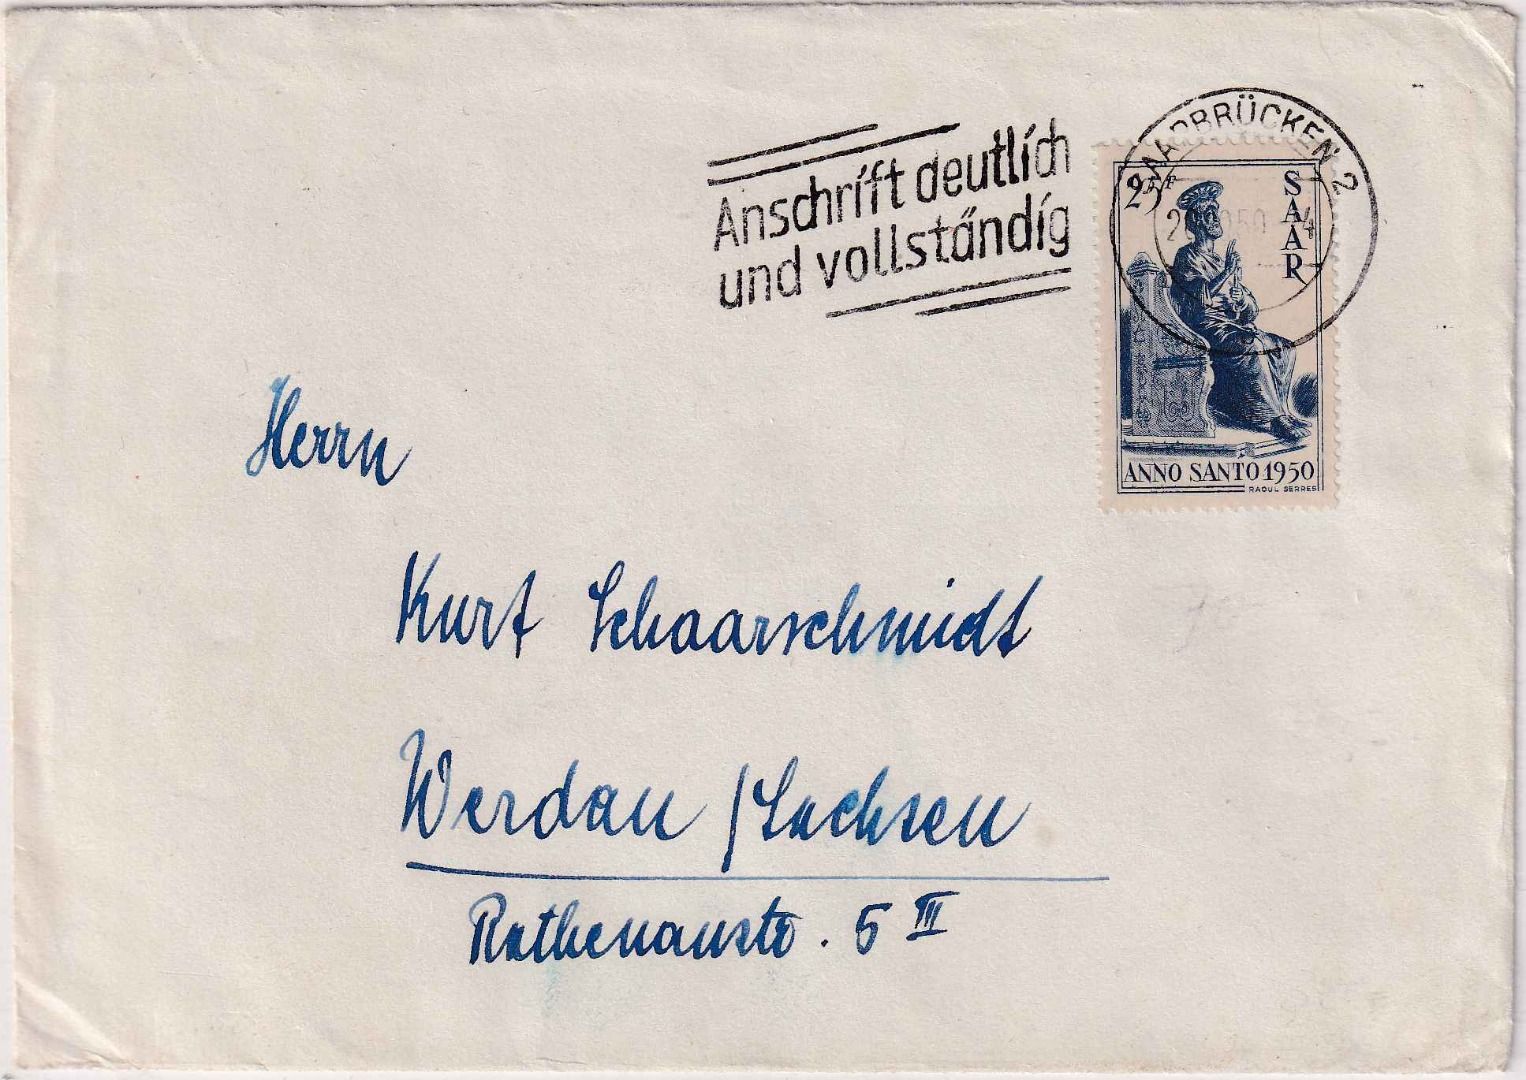 Anschrift deutlich
und vollständig
SAARBRÜCKEN 2
25 F
SAAR
ANNO SANTO 1950
RAOUL SERRES
Herrn
Kurt Schaarschmidt
Werdau / Sachsen
Rathenaustr. 5 III